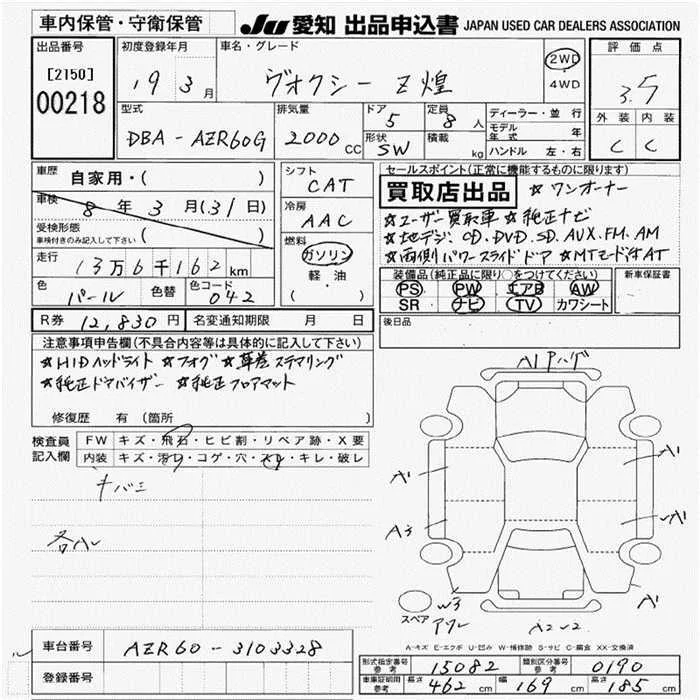 車内保管・守衛保管
JU 愛知 出品申込書 JAPAN USED CAR DEALERS ASSOCIATION
出品番号
[2150]
00218
初度登録年月
19 3月
車名・グレード
ヴォクシー Z煌
2WD
・4WD
評価点
3.5
外装 内装
C C
型式
DBA-AZR60G
排気量
2000cc
ドア
5
定員
8人
形状
SW
積載
kg
ディーラー・並行
モデル年式 年
ハンドル 左・右
車歴
自家用・( )
車検
8年3月(31日)
受検形態
車検付きのみ記入して下さい ( )
走行
13万6千162km
色
パール
色替
色コード
042
シフト
CAT
冷房
AAC
燃料
ガソリン
軽油
( )
セールスポイント(正常に機能するものに限ります)
買取店出品 ☆ワンオーナー
☆ユーザー買取車 ☆純正ナビ
☆地デジ.CD.DVD.SD.AUX.FM.AM
☆両側パワースライドドア ☆MTモード付AT
装備品(純正品に限り○をつけてください)
PS PW エアB AW
SR ナビ TV カワシート
新車保証書
R券 12,830円 名変通知期限 月 日
後日品
注意事項申告欄(不具合内容等は具体的に記入して下さい)
☆HIDヘッドライト ☆フォグ ☆革巻ステアリング
☆純正ドアバイザー ☆純正フロアマット
修復歴 有(箇所 )
検査員記入欄
FW キズ・飛石・ヒビ割・リペア跡・X要
内装 キズ・汚れ・コゲ・穴・スレ・キレ・破レ
キバミ
各ハレ
A1
A1
A1
A3
A1
A1
W3
A2
スペア
A-キズ E-エクボ U-凹み W-補修跡 S-サビ C-腐食 XX-交換済
車台番号
AZR60-3103328
登録番号
形式指定番号
参考
15082
類別区分番号
参考
0190
車庫証明用
参考
長さ 462cm
幅 169cm
高さ 185cm